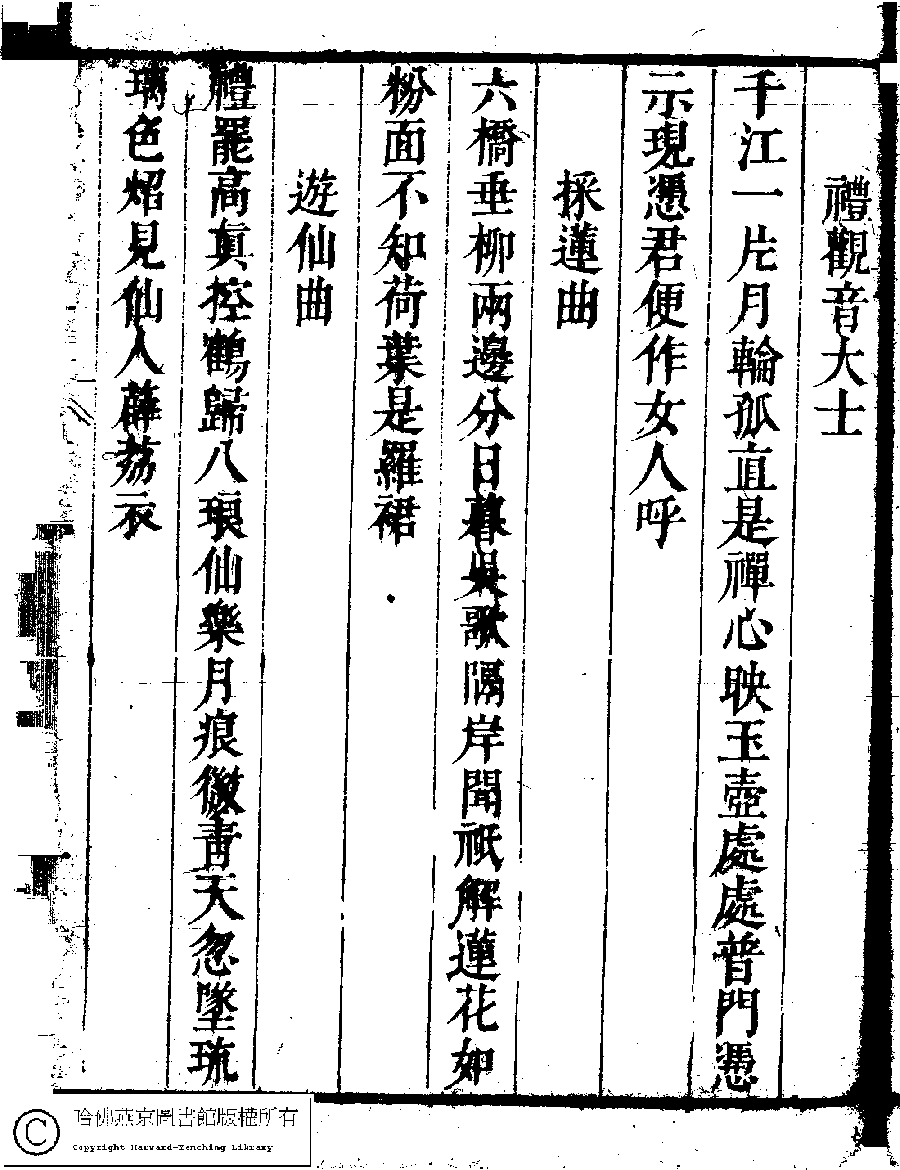 禮觀音大士
千江一片月輪孤直是禪心映玉壺處處普門憑
示現憑君便作女人呼
採蓮曲
六橋垂柳兩邊分日暮吳歌隔岸聞祇解蓮花如
粉面不知荷葉是羅裙
遊仙曲
禮罷高眞控鶴歸八琅仙樂月痕微靑天忽墜琉
璃色炤見仙人薜荔衣
哈佛燕京圖書館版權所有
Copyright Harvard-Yenching Library